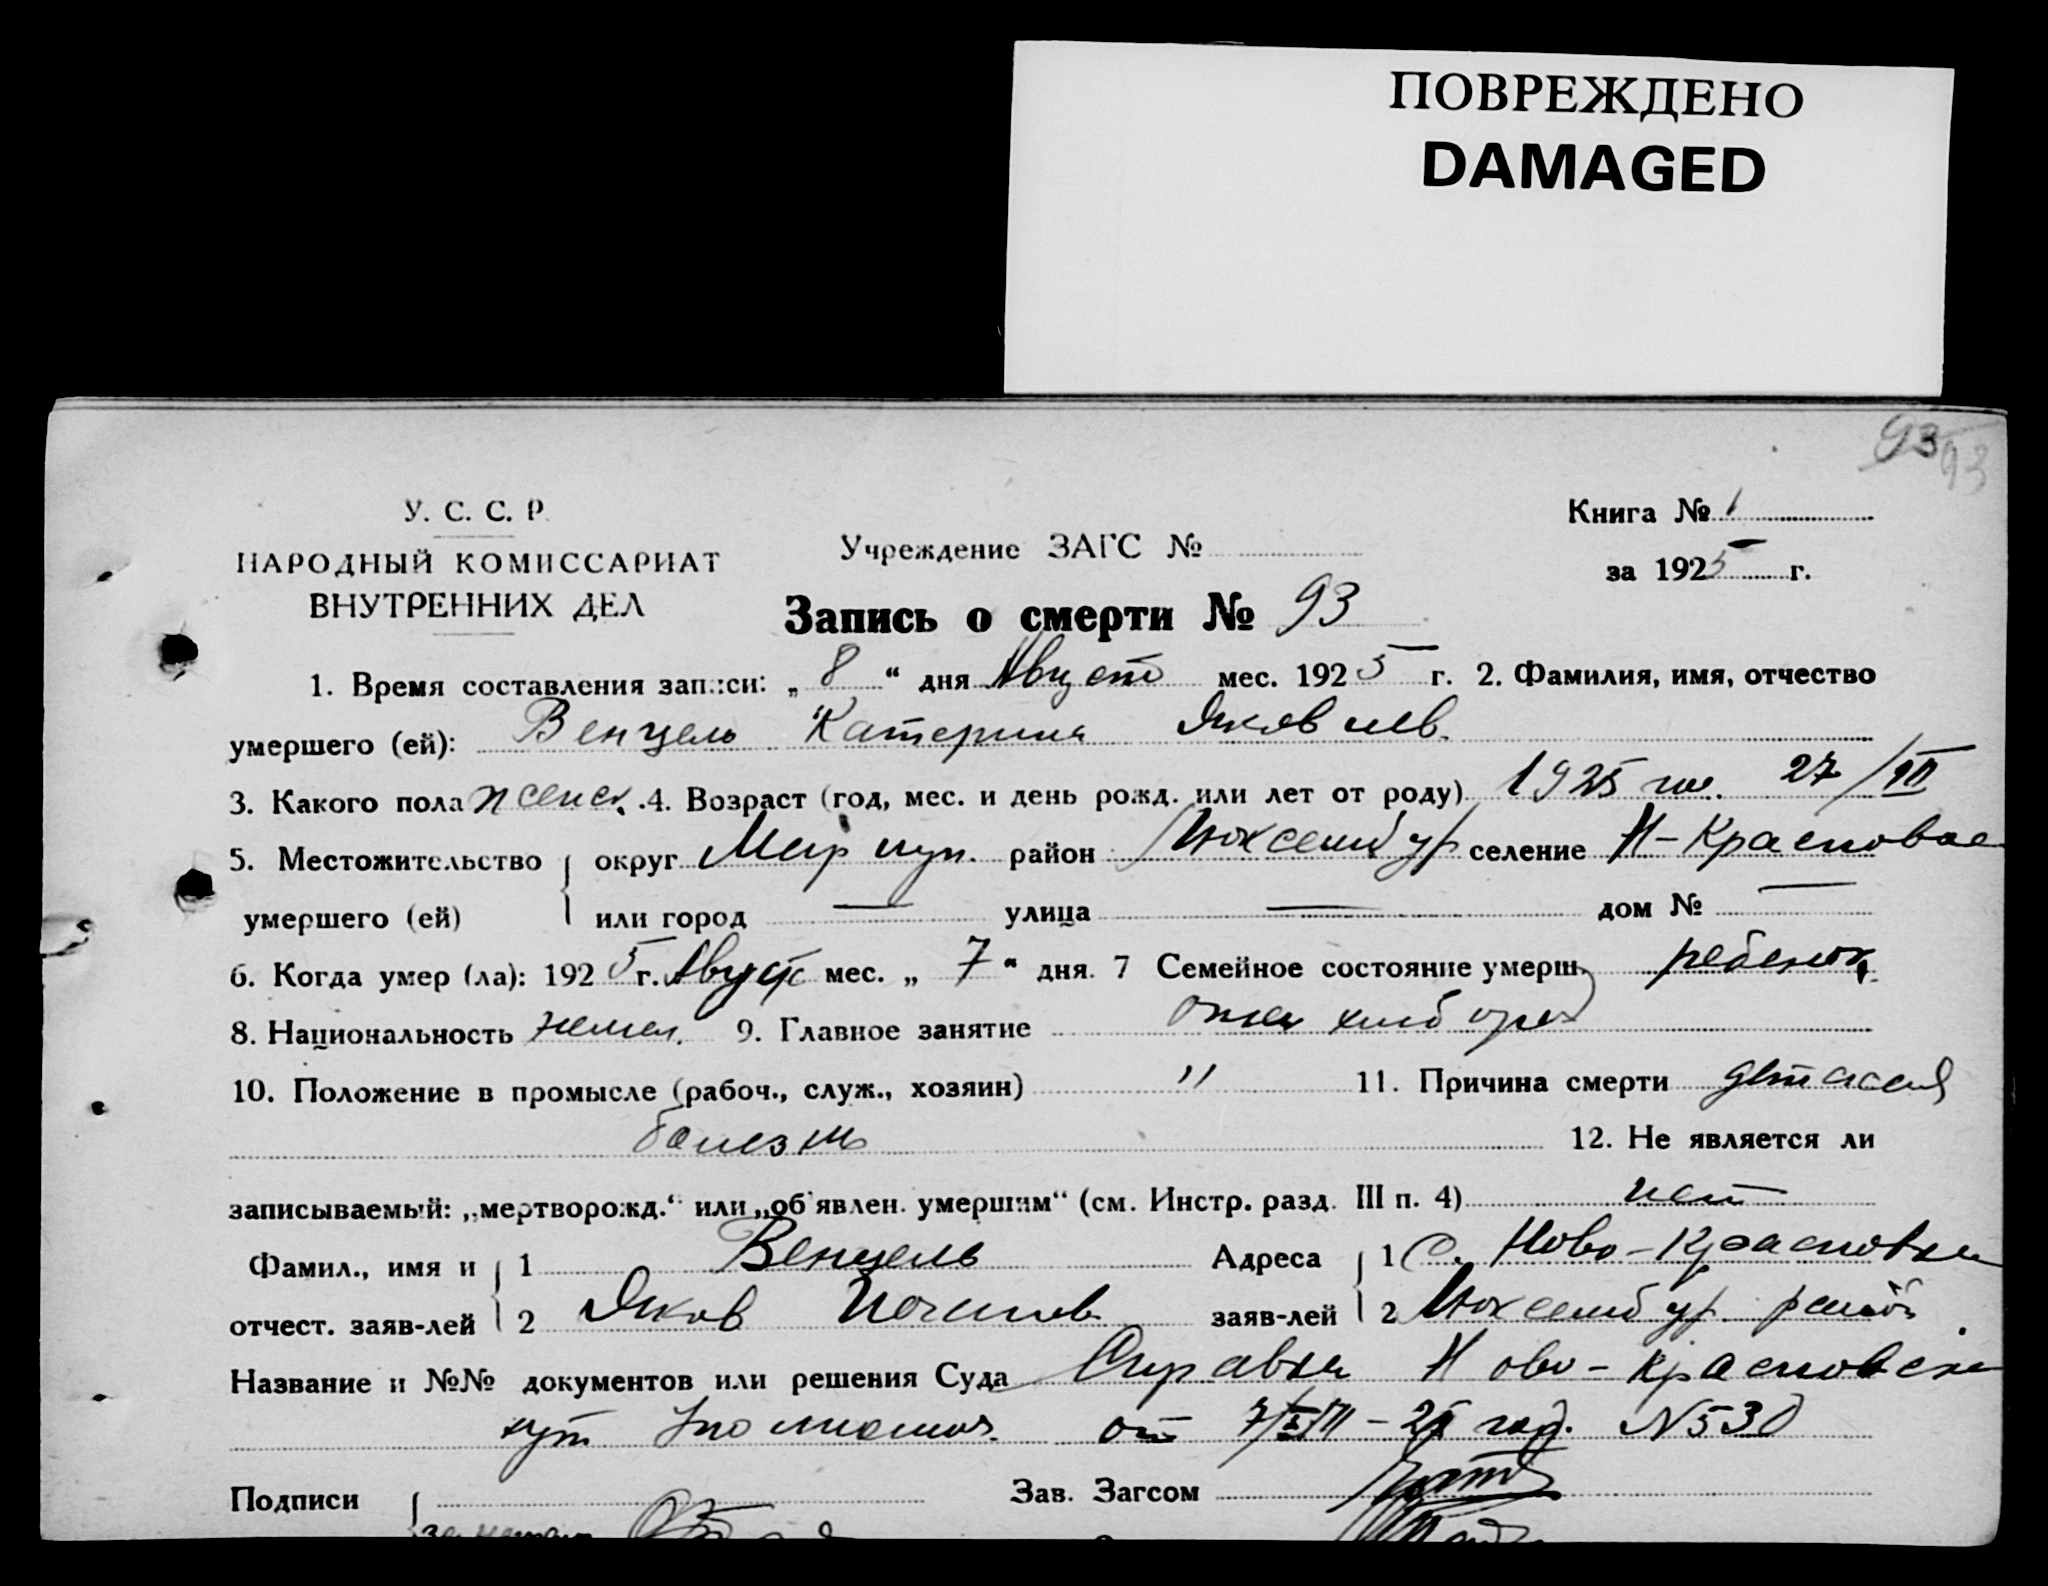 ПОВРЕЖДЕНО
DAMAGED
93 93
У. С. С. Р.
НАРОДНЫЙ КОМИССАРИАТ
ВНУТРЕННИХ ДЕЛ
Учреждение ЗАГС №
Книга № 1
за 1925 г.
Запись о смерти № 93
1. Время составления записи: „ 8 “ дня Август мес. 1925 г. 2. Фамилия, имя, отчество
умершего (ей): Венцель Катерина Яковлев.
3. Какого пола женск. 4. Возраст (год, мес. и день рожд. или лет от роду) 1925 27/VII
5. Местожительство округ Мариуп. район Люксембур селение Н-Красновка
умершего (ей) или город — улица — дом № —
6. Когда умер (ла): 1925 г. Август мес. „ 7 “ дня. 7 Семейное состояние умерш. ребенок
8. Национальность немец. 9. Главное занятие отец хлебороб
10. Положение в промысле (рабоч., служ., хозяин) " 11. Причина смерти детская
болезнь 12. Не является ли
записываемый: „мертворожд.“ или „об'явлен. умершим“ (см. Инстр. разд. III п. 4) нет
Фамил., имя и 1 Венцель Адреса 1 С. Ново-Красновка
отчест. заяв-лей 2 Яков заяв-лей 2 Люксембур. район
Название и №№ документов или решения Суда Справка Ново-Красновск
от 7/VIII-25 год. N530
Подписи Зав. Загсом